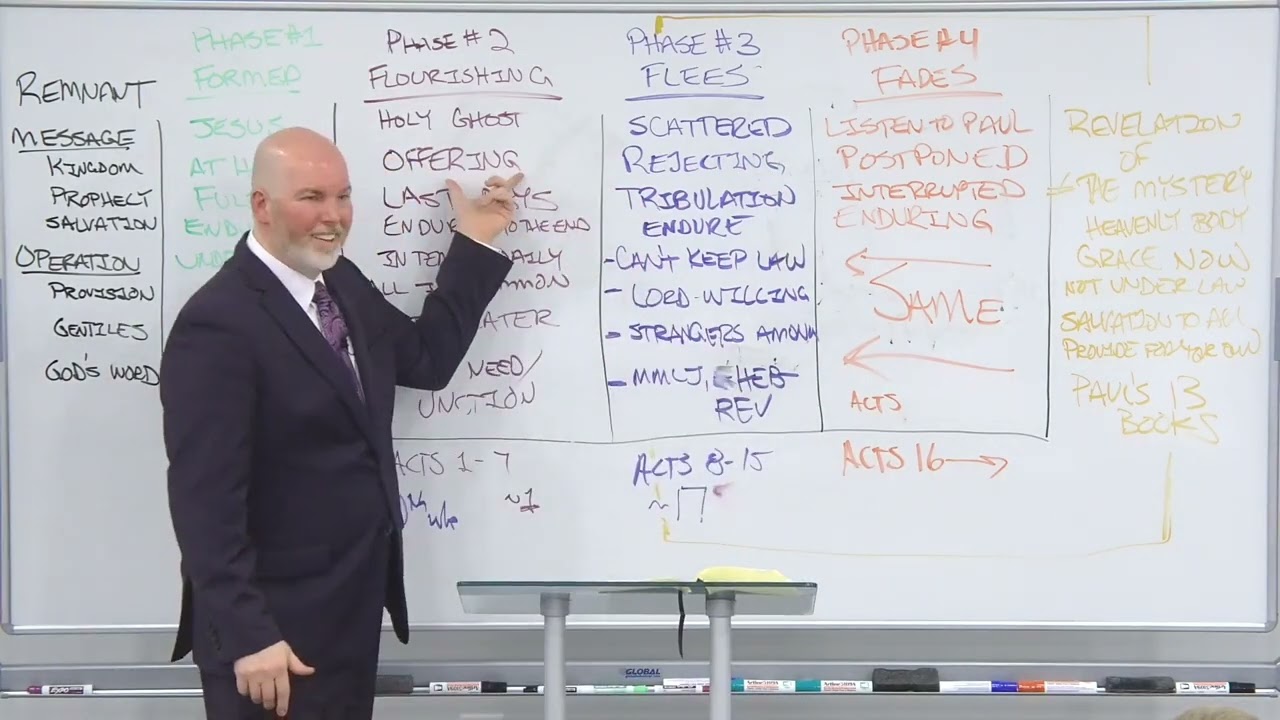 REMNANT
MESSAGE
KINGDOM
PROPHECY
SALVATION
OPERATION
PROVISION
GENTILES
GOD'S WORD
PHASE #1
FORMED
JESUS
AT H
FUL
END
UND
PHASE #2
FLOURISHING
HOLY GHOST
OFFERING
LAST YS
ENDU TO THE END
IN TE AILY
LL I MMON
ATER
NEED/
UNCTION
ACTS 1-7
~1
PHASE #3
FLEES
SCATTERED
REJECTING
TRIBULATION
ENDURE
-CAN'T KEEP LAW
- LORD-WILLING
- STRANGERS AMONG
- MMLJ, HEB
REV
ACTS 8-15
~17
PHASE #4
FADES
LISTEN TO PAUL
POSTPONED
INTERRUPTED
ENDURING
SAME
ACTS
ACTS 16
REVELATION
OF
THE MYSTERY
HEAVENLY BODY
GRACE NOW
NOT UNDER LAW
SALVATION TO ALL
PROVIDE FOR YOR OWN
PAUL'S 13
BOOKS
GLOBAL
EXPO